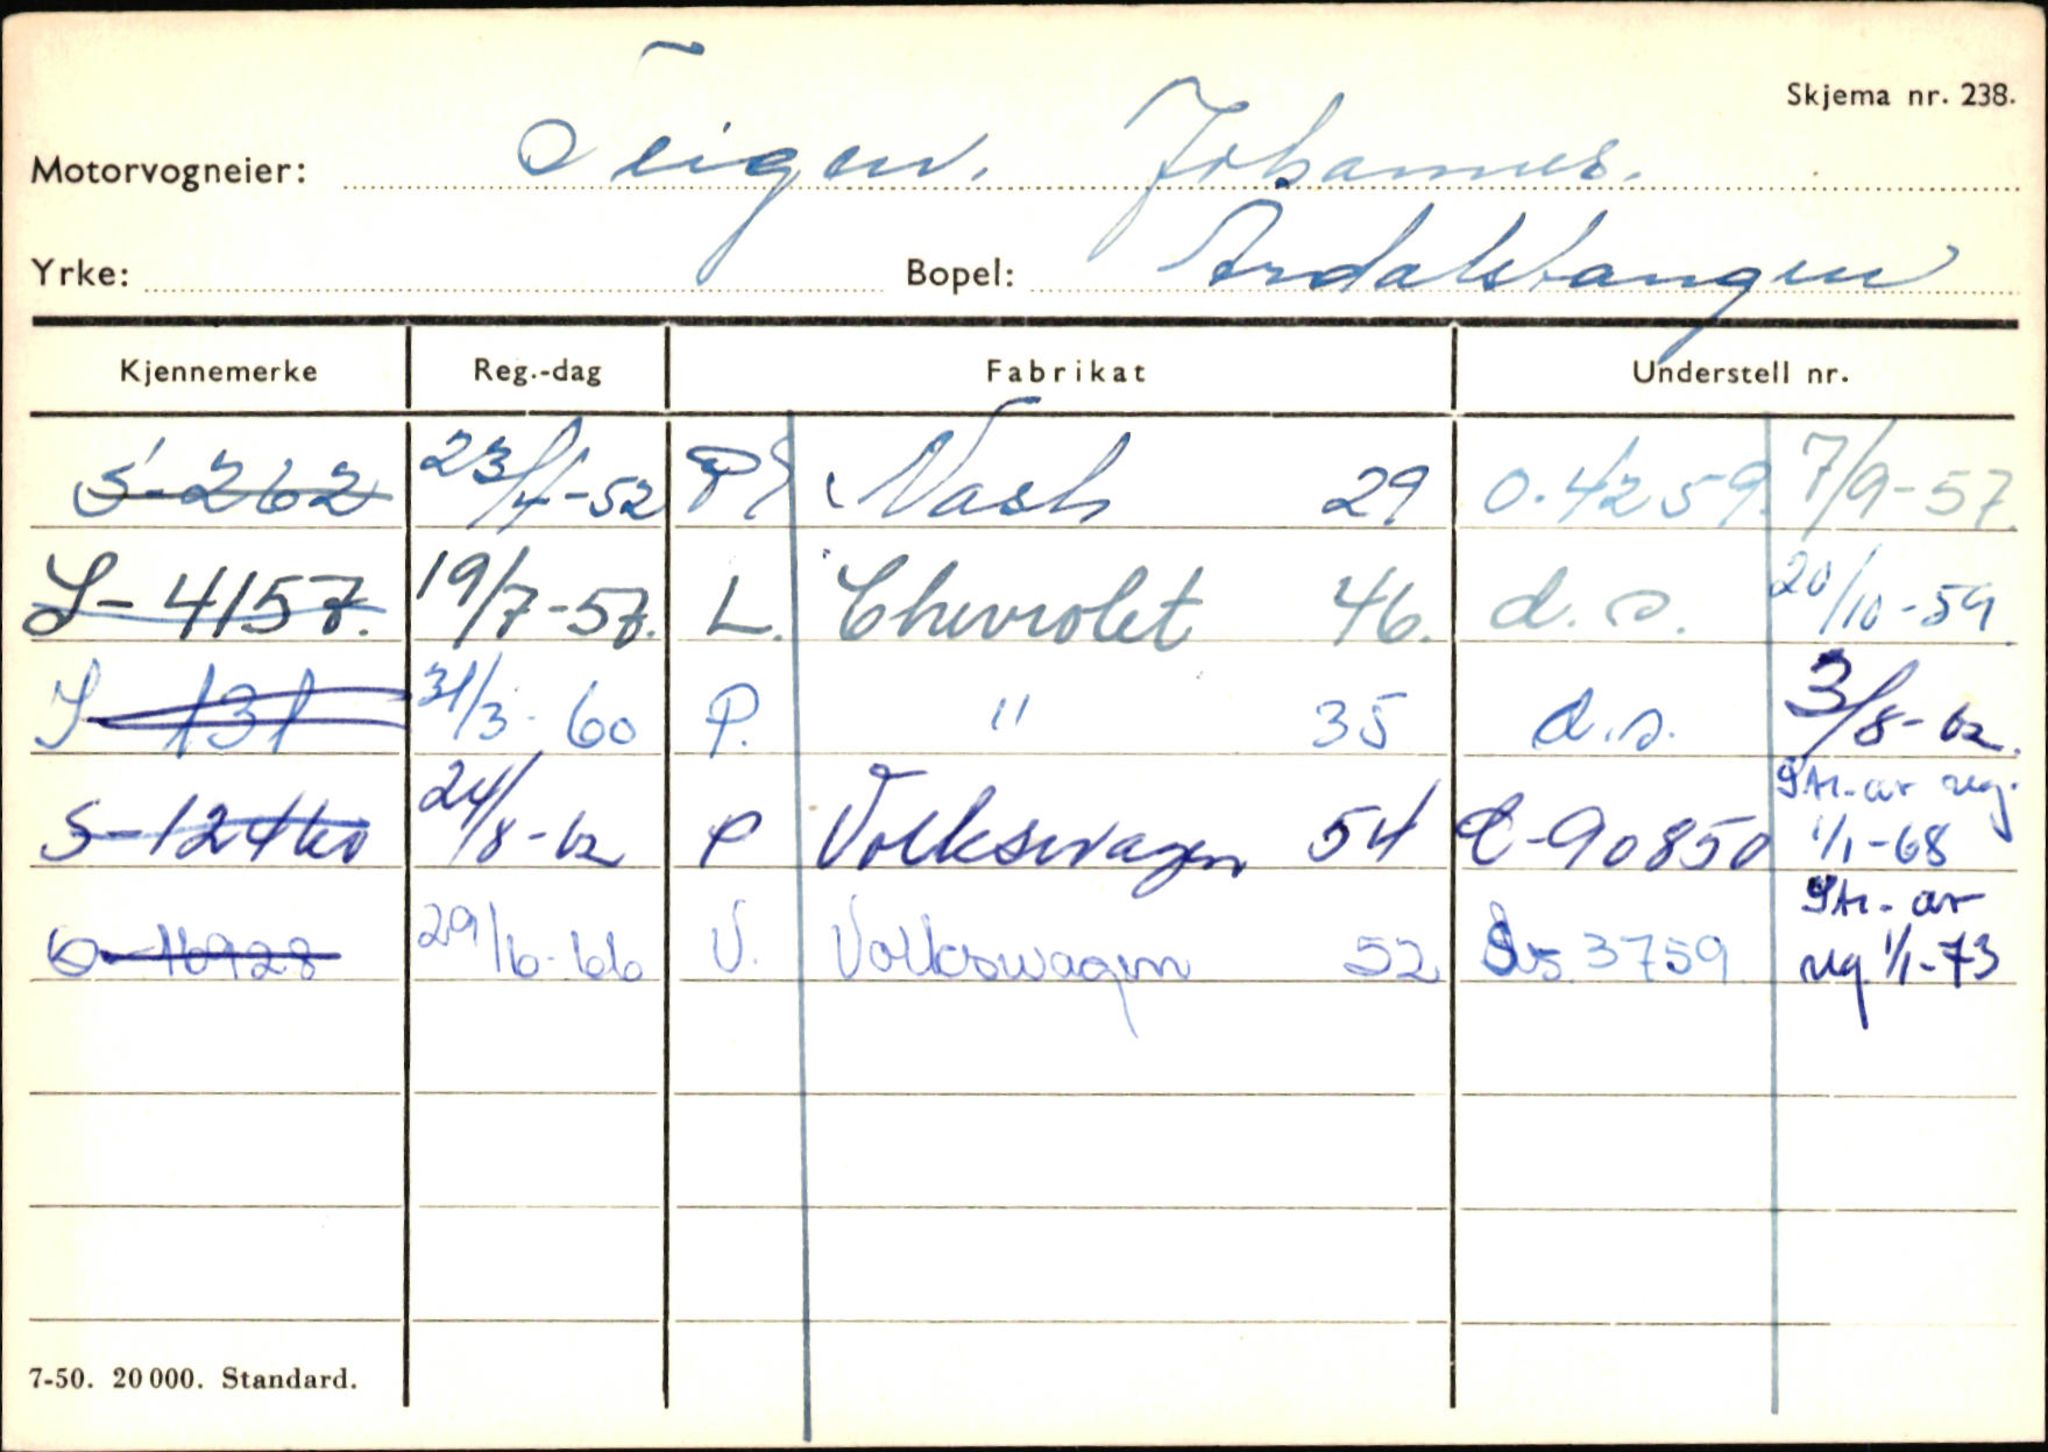 Skjema nr. 238.
Motorvogneier: Teigen. Johannes.
Yrke: Bopel: Årdalstangen
Kjennemerke Reg.-dag Fabrikat Understell nr.
S-262 23/4-52 P Nash 29 0.4259. 7/9-57.
S-4157. 19/7-57. L. Chevrolet 46. d.o. 20/10-59
S-131 31/3-60 P. " 35 d.o. 3/8-62.
S-12460 24/8-62 P Volkswagen 54 C-90850 Str. av reg. 1/1-68
S-16928 29/6-66 V. Volkswagen 52 3759 Str. av
reg. 1/1-73
7-50. 20 000. Standard.